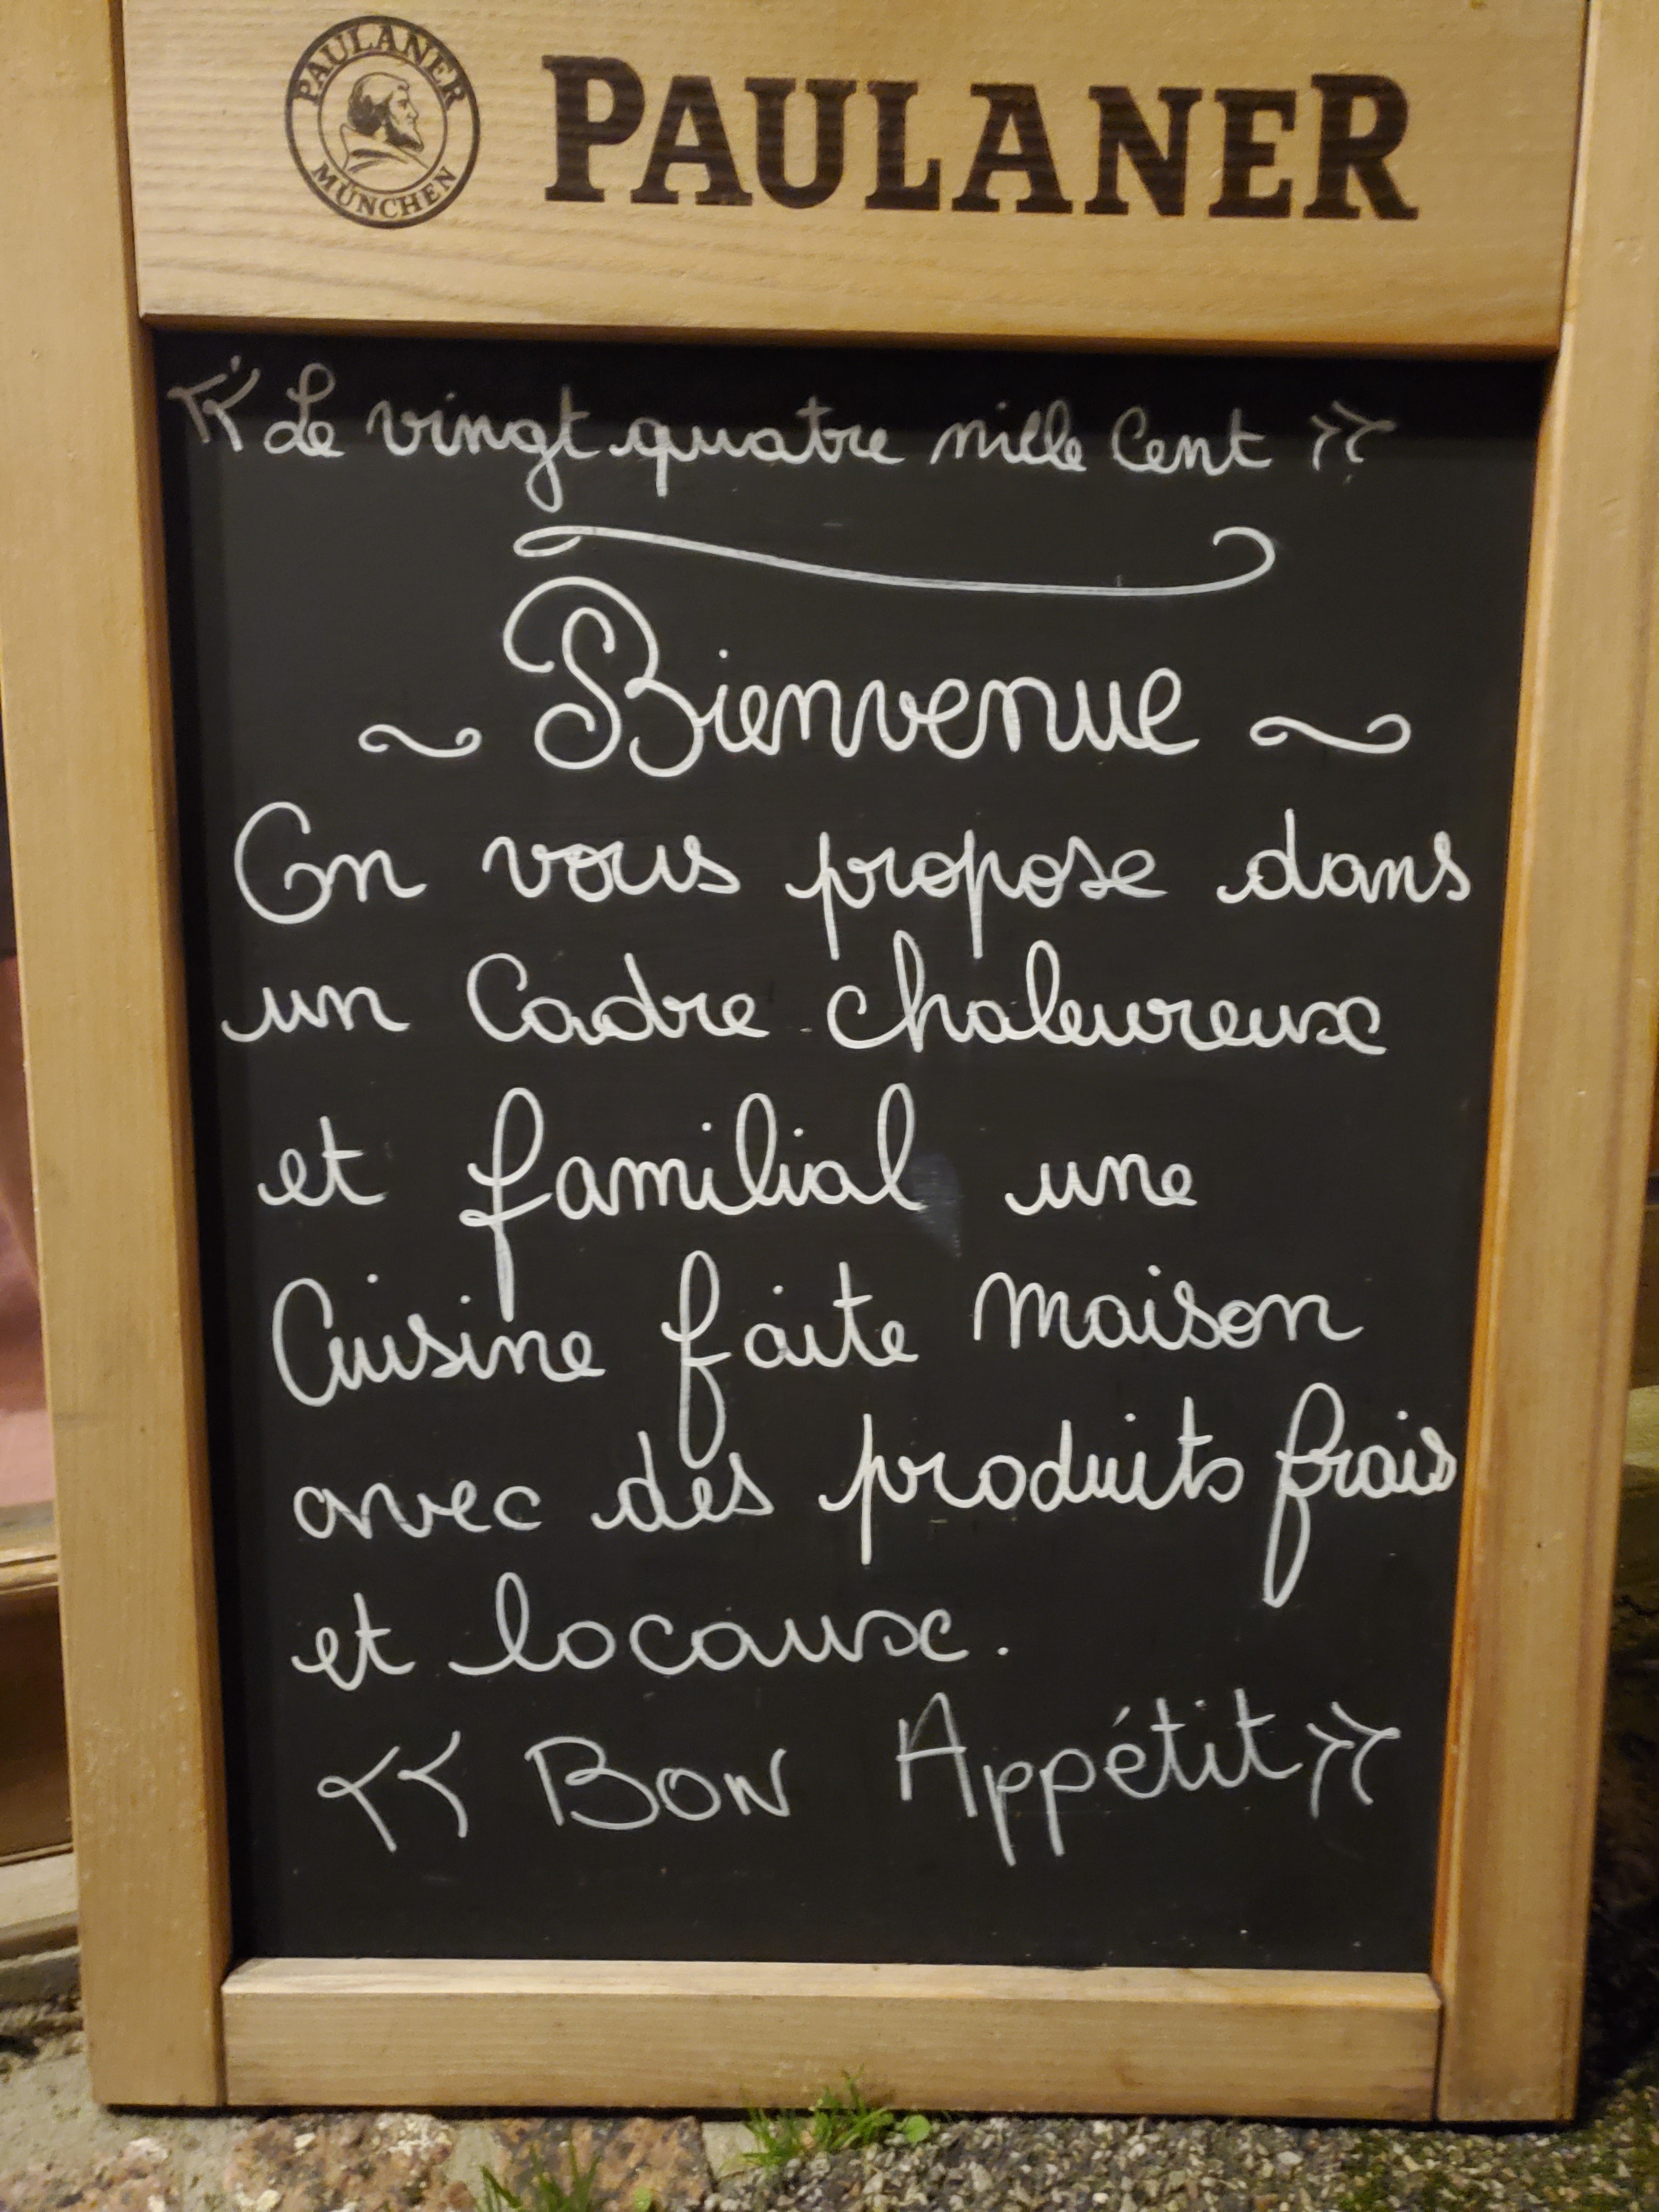 PAULANER MÜNCHEN
PAULANER
« Le vingt quatre mille Cent »
~ Bienvenue ~
On vous propose dans
un Cadre chaleureux
et familial une
Cuisine faite Maison
avec des produits frais
et locaux.
« BON Appétit »